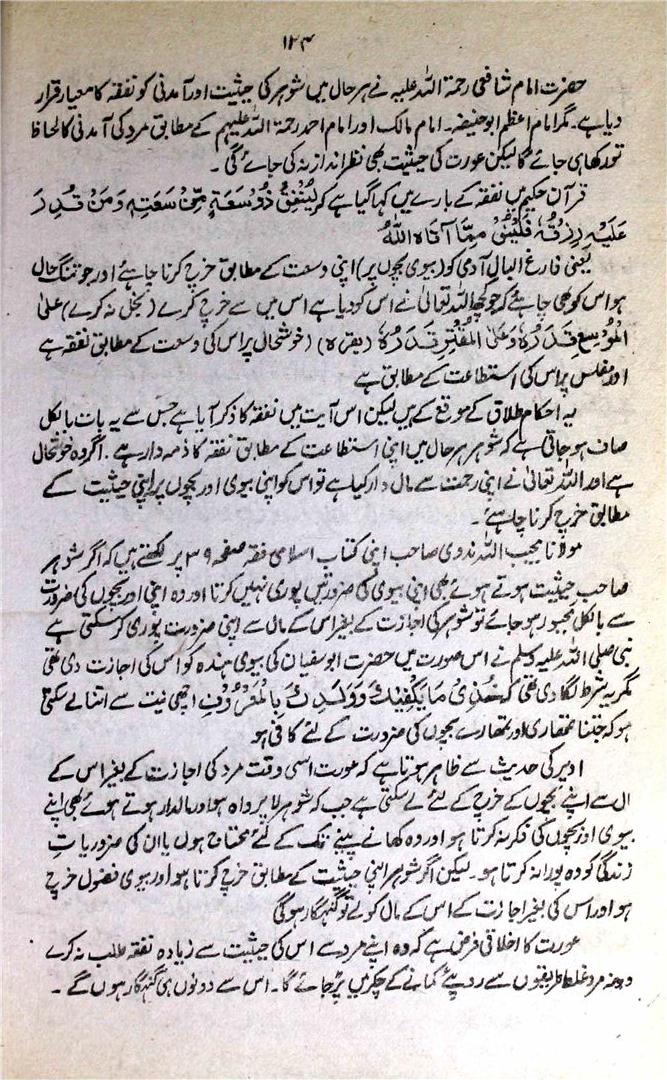 ۱۲۴
حضرت امام شافعی رحمۃ اللہ علیہ نے ہر حال میں شوہر کی حیثیت اور آمدنی کو نفقہ کا معیار قرار
دیا ہے۔ مگر امام اعظم ابوحنیفہ۔ امام مالک اور امام احمد رحمۃ اللہ علیہم کے مطابق مرد کی آمدنی کا لحاظ
تو رکھا ہی جائے گا لیکن عورت کی حیثیت بھی نظر انداز نہ کی جائے گی۔
قرآن حکیم میں نفقہ کے بارے میں کہا گیا ہے کہ لِیُنْفِقْ ذُوْ سَعَۃٍ مِّنْ سَعَتِہٖ وَمَنْ قُدِرَ
عَلَیْہِ رِزْقُہٗ فَلْیُنْفِقْ مِمَّا آتَاہُ اللّٰہُ
یعنی فارغ البال آدمی کو (بیوی بچوں پر) اپنی وسعت کے مطابق خرچ کرنا چاہئے اور جو تنگ حال
ہو اس کو بھی چاہئے کہ جو کچھ اللہ تعالیٰ نے اس کو دیا ہے اس میں سے خرچ کرے (بخل نہ کرے) عَلَی
الْمُوْسِعِ قَدَرُہٗ وَعَلَی الْمُقْتِرِ قَدَرُہٗ (بقرہ) (خوشحال پر اس کی وسعت کے مطابق نفقہ ہے
اور مفلس پر اس کی استطاعت کے مطابق ہے
یہ احکام طلاق کے موقع کے ہیں لیکن اس آیت میں نفقہ کا ذکر آیا ہے جس سے یہ بات بالکل
صاف ہو جاتی ہے کہ شوہر ہر حال میں اپنی استطاعت کے مطابق نفقہ کا ذمہ دار ہے۔ اگر وہ خوشحال
ہے اور اللہ تعالیٰ نے اپنی رحمت سے مال دار کیا ہے تو اس کو اپنی بیوی اور بچوں پر اپنی حیثیت کے
مطابق خرچ کرنا چاہئے۔
مولانا مجیب اللہ ندوی صاحب اپنی کتاب اسلامی فقہ صفحہ ۳۹ پر لکھتے ہیں کہ اگر شوہر
صاحب حیثیت ہوتے ہوئے بھی اپنی بیوی کی ضرورتیں پوری نہیں کرتا اور وہ اپنی اور بچوں کی ضرورت
سے بالکل مجبور ہو جائے تو شوہر کی اجازت کے بغیر اس کے مال سے اپنی ضرورت پوری کر سکتی ہے
نبی صلی اللہ علیہ وسلم نے اس صورت میں حضرت ابو سفیان کی بیوی ہندہ کو اس کی اجازت دی تھی
مگر یہ شرط لگا دی تھی کہ خُذِیْ مَا یَکْفِیْکِ وَوَلَدِکِ بِالْمَعْرُوْفِ اچھی نیت سے اتنا لے سکتی
ہو کہ جتنا تمھاری اور تمھارے بچوں کی ضرورت کے لئے کافی ہو
اوپر کی حدیث سے ظاہر ہوتا ہے کہ عورت اسی وقت مرد کی اجازت کے بغیر اس کے
ال سے اپنے بچوں کے خرچ کے لئے لے سکتی ہے جب کہ شوہر لا پرواہ ہو اور مالدار ہوتے ہوئے بھی اپنے
بیوی اور بچوں کی فکر نہ کرتا ہو اور وہ کھانے پینے تک کے لئے محتاج ہوں یا ان کی ضروریاتِ
زندگی کو وہ پورا نہ کرتا ہو۔ لیکن اگر شوہر اپنی حیثیت کے مطابق خرچ کرتا ہو اور بیوی فضول خرچ
ہو اور اس کی بغیر اجازت کے اس کے مال کو لے تو گنہگار ہو گی
عورت کا اخلاقی فرض ہے کہ وہ اپنے مرد سے اس کی حیثیت سے زیادہ نفقہ طلب نہ کرے
ورنہ مرد غلط طریقوں سے روپئے کمانے کے چکر میں پڑ جائے گا۔ اس سے دونوں ہی گنہگار ہوں گے۔